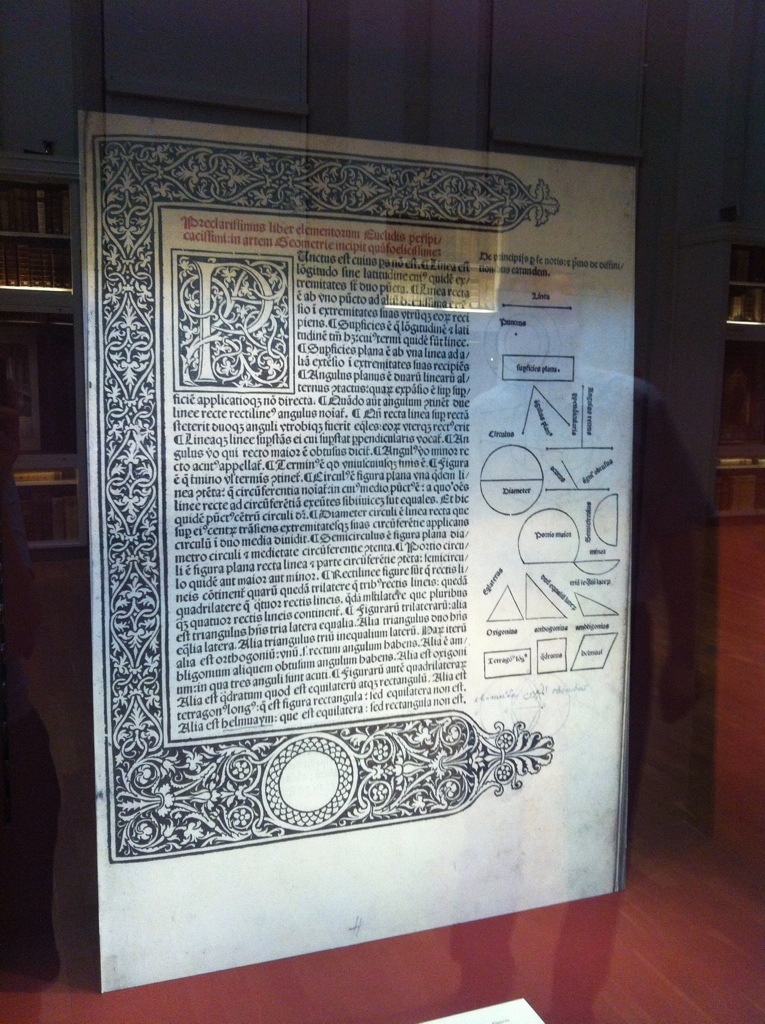 Preclarissimus liber elementorum Euclidis perspi/
cacissimi: in artem Geometrie incipit quāfoelicissime:
PUnctus est cuius ps nō est. ¶ Linea est
lōgitudo sine latitudine cuiꝰ quidē ex/
tremitates st duo pūcta. ¶ Linea recta
ē ab vno pūcto ad
sio ī extremitates suas vtrūqꝫ eoꝝ reci
piens. ¶ Supficies ē q̄ lōgitudinē ⁊ lati
tudinē tm̄ hꝫ: cuiꝰ termi quidē sūt linee.
¶ Supficies plana ē ab vna linea ad a/
liā extēsio ī extremitates suas recipiēs
¶ Angulus planus ē duarū linearū al/
ternus ꝯtactus: quaꝝ expāsio ē sup sup/
ficiē applicatioqꝫ nō directa. ¶ Quādo aut angulum ꝯtinēt due
linee recte rectilineꝰ angulus noiaf. ¶ Qn̄ recta linea sup rectā
steterit duoqꝫ anguli vtrobiqꝫ fuerit eq̄les: eoꝝ vterqꝫ rectꝰ erit
¶ Lineaqꝫ linee supstās ei cui supstat ppendicularis vocaf. ¶ An
gulus vo qui recto maior ē obtusus dicif. ¶ Angulꝰ vo minor re
cto acutꝰ appellaf. ¶ Terminꝰ ē qd vniuscuiusqꝫ finis ē. ¶ Figura
ē q̄ tmino vl terminis ꝯtinef. ¶ Circulꝰ ē figura plana vna qdem li/
nea ꝯtēta: q̄ circūferentia noiaf: in cuiꝰ medio pūctꝰ ē: a quo oēs
linee recte ad circūferētiā exeūtes sibiinuicē sūt equales. Et hic
quidē pūctꝰ cētrū circuli dꝛ. ¶ Diameter circuli ē linea recta que
sup eiꝰ centꝝ trāsiens extremitatesqꝫ suas circūferētie applicans
circulū i duo media diuidit. ¶ Semicirculus ē figura plana dia/
metro circuli ⁊ medietate circūferentie ꝯtenta. ¶ Portio circu/
li ē figura plana recta linea ⁊ parte circūferētie ꝯtēta: semicircu/
lo quidē aut maior aut minor. ¶ Rectilinee figure sūt q̄ rectis li/
neis cōtinent quarū quedā trilatere q̄ tribꝰ rectis lineis: quedā
quadrilatere q̄ qtuor rectis lineis. qdā mltilatere que pluribus
qꝫ quatuor rectis lineis continent. ¶ Figurarū trilaterarū: alia
est triangulus hn̄s tria latera equalia. Alia triangulus duo hn̄s
eq̄lia latera. Alia triangulus trium inequalium laterū. Haꝝ iterū
alia est orthogoniū: vnū .s. rectum angulum habens. Alia ē am/
bligonium aliquem obtusum angulum habens. Alia est oxigoni
um: in qua tres anguli sunt acuti. ¶ Figurarū aūt quadrilateraꝝ
Alia est qdratum quod est equilaterū atqꝫ rectangulū. Alia est
tetragonꝰ longꝰ: q̄ est figura rectangula: sed equilatera non est.
Alia est helmuaym: que est equilatera: sed rectangula non est.
De principijs p se notis: ⁊ pmo de diffini/
tionibus earundem.
Linea
Punctus
supficies plana.
Circulus
Diameter
Portio maior
minor
Semicirculus
Origonius
orthogonius
ambligonius
Tetragonꝰ lōgꝰ
qdratus
helmuaym